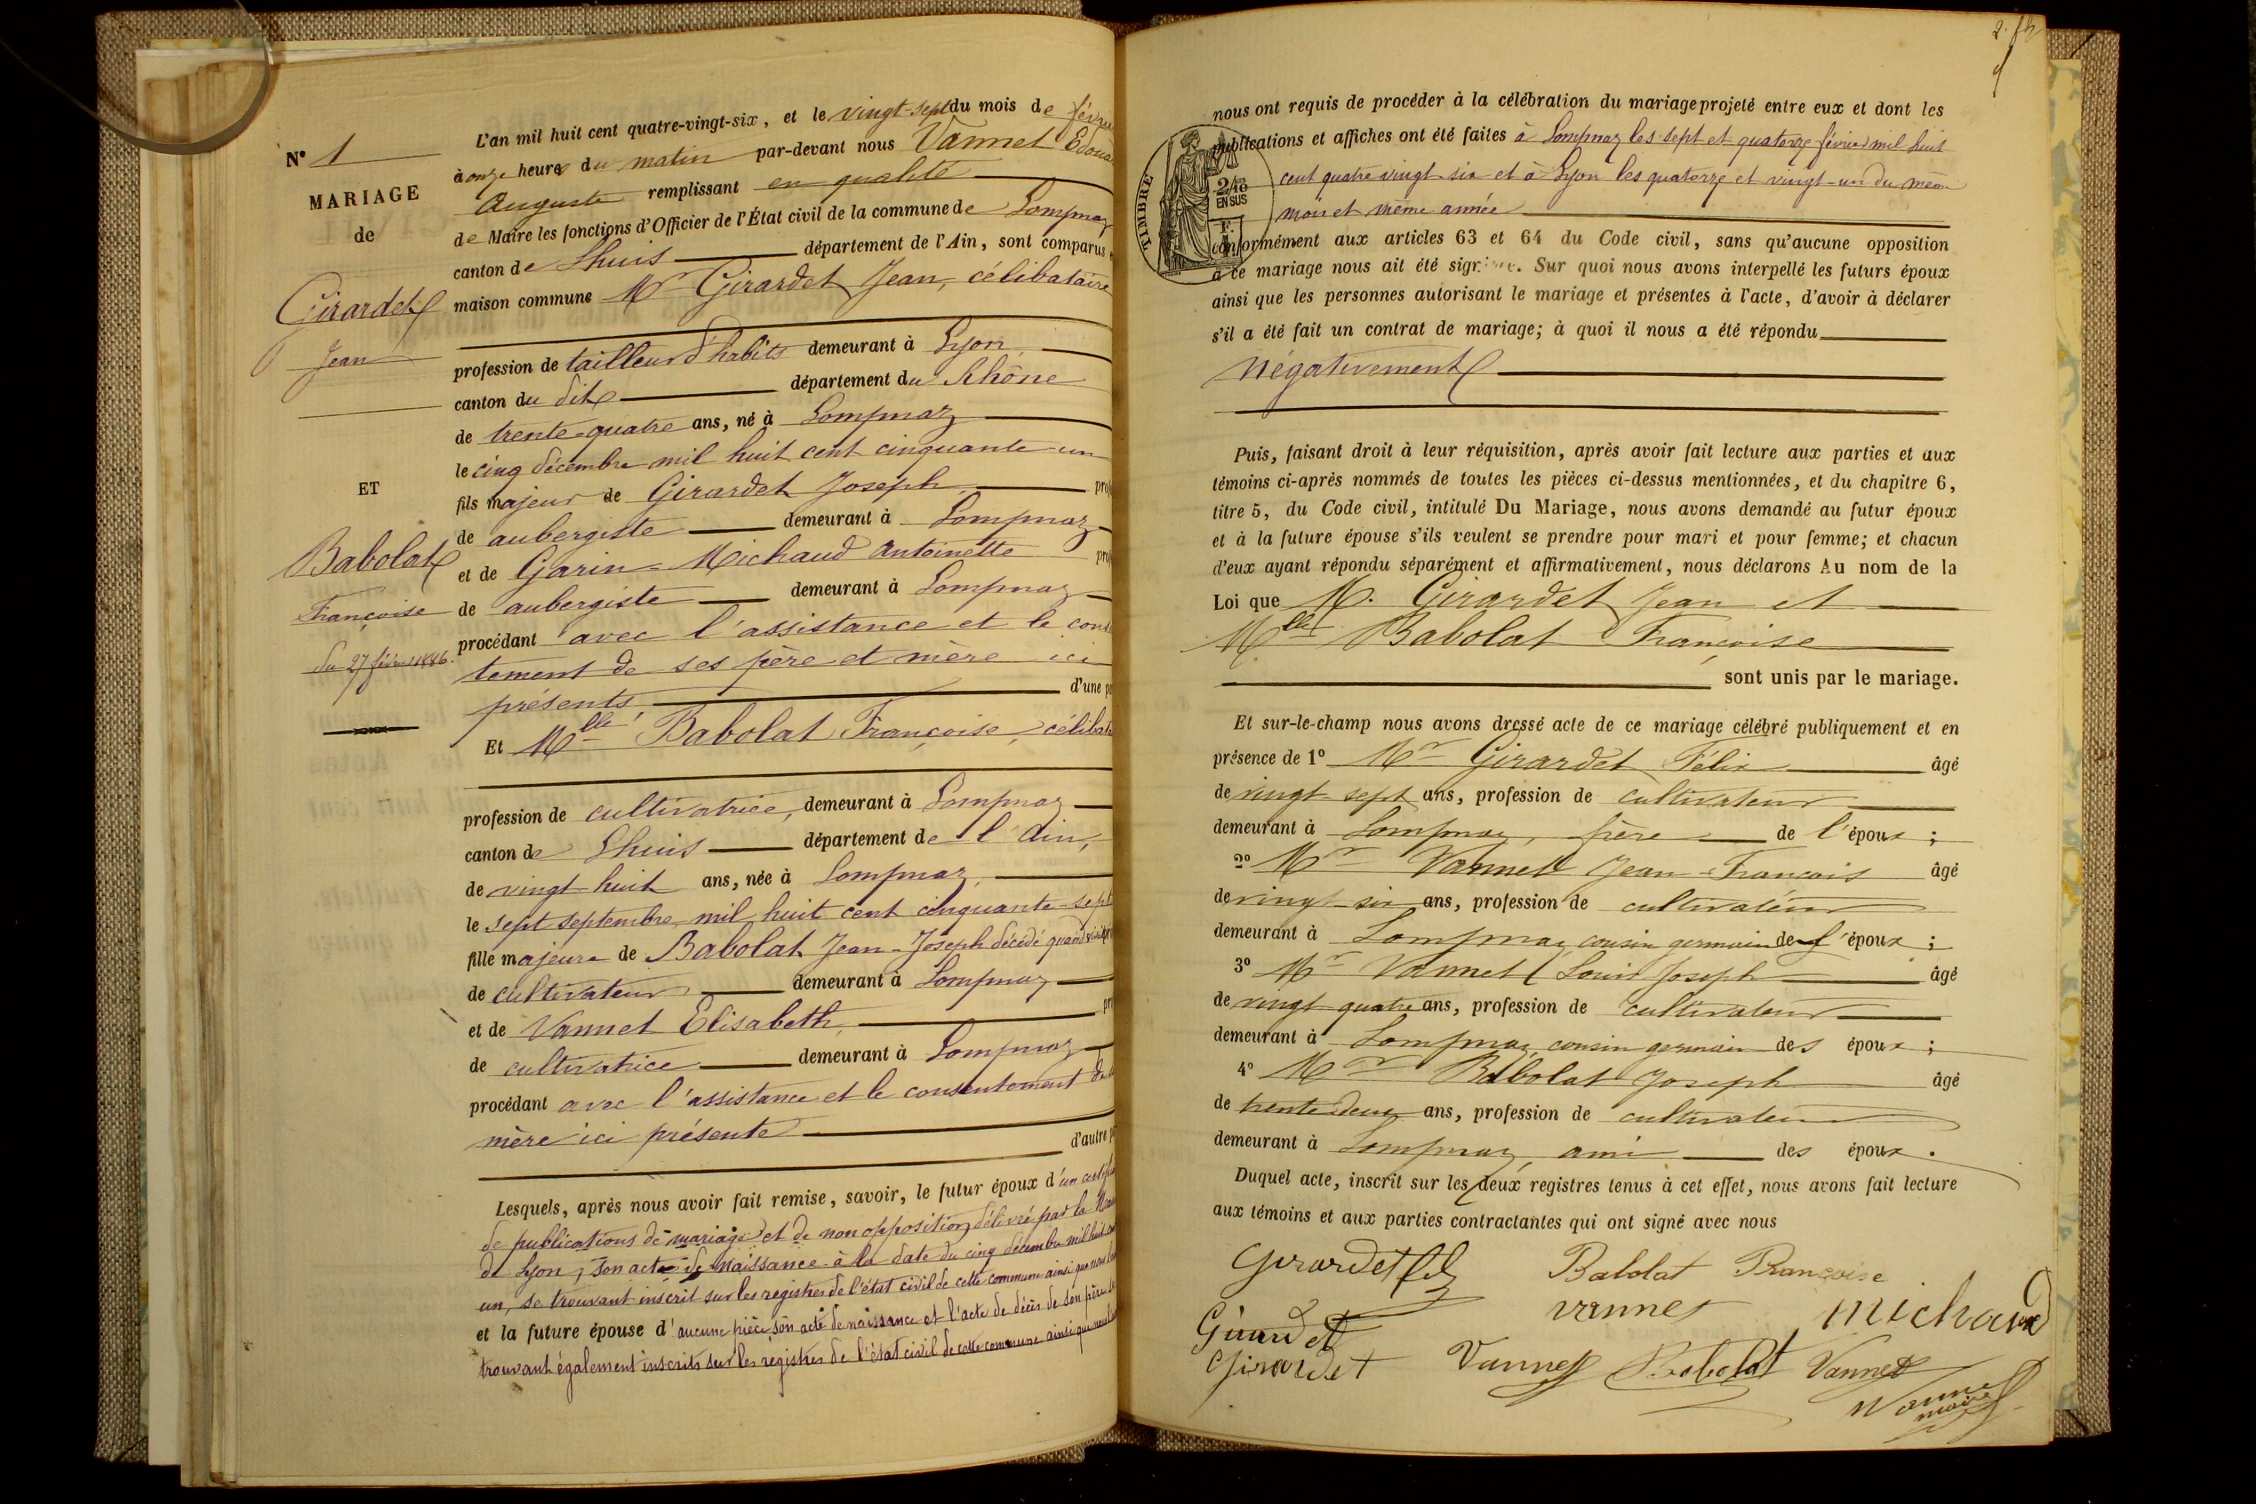 N° 1
MARIAGE
de
Girardet
Jean
ET
Babolat
Françoise
du 27 février 1886.
L'an mil huit cent quatre-vingt-six, et le vingt-sept du mois de févri
à onze heures du matin par-devant nous Vannet Edoua
Auguste remplissant en qualité
de Maire les fonctions d'Officier de l'État civil de la commune de Lompnaz
canton de Lhuis département de l'Ain, sont comparus
maison commune Mr Girardet Jean, célibataire
profession de tailleur d'habits demeurant à Lyon
canton du dit département du Rhône
de trente-quatre ans, né à Lompnaz
le cinq décembre mil huit cent cinquante-un
fils majeur de Girardet Joseph prof
de aubergiste demeurant à Lompnaz
et de Garin-Michaud Antoinette prof
de aubergiste demeurant à Lompnaz
procédant avec l'assistance et le cons
tement de ses père et mère ici
présents d'une p
Et Mlle Babolat Françoise, célibat
profession de cultivatrice, demeurant à Lompnaz
canton de Lhuis département de l'Ain,
de vingt-huit ans, née à Lompnaz,
le sept septembre mil huit cent cinquante-sept
fille majeure de Babolat Jean-Joseph décédé quand vivait
de cultivateur demeurant à Lompnaz
et de Vannet Elisabeth, pr
de cultivatrice demeurant à Lompnaz
procédant avec l'assistance et le consentement de
mère ici présente
d'autre p
Lesquels, après nous avoir fait remise, savoir, le futur époux d'un certif
de publications de mariage et de non opposition délivré par la Mair
de Lyon, son acte de naissance à la date du cinq décembre mil huit
un, se trouvant inscrit sur les registres de l'état civil de cette commune ainsi que nous
et la future épouse d'aucune pièce, son acte de naissance et l'acte de décès de son père
trouvant également inscrits sur les registres de l'état civil de cette commune ainsi que nous
2.
TIMBRE
2/10 EN SUS
nous ont requis de procéder à la célébration du mariage projeté entre eux et dont les
publications et affiches ont été faites à Lompnaz les sept et quatorze février mil huit
cent quatre vingt-six et à Lyon les quatorze et vingt-un du même
mois et même année
conformément aux articles 63 et 64 du Code civil, sans qu'aucune opposition
à ce mariage nous ait été signifiée. Sur quoi nous avons interpellé les futurs époux
ainsi que les personnes autorisant le mariage et présentes à l'acte, d'avoir à déclarer
s'il a été fait un contrat de mariage; à quoi il nous a été répondu
négativement
Puis, faisant droit à leur réquisition, après avoir fait lecture aux parties et aux
témoins ci-après nommés de toutes les pièces ci-dessus mentionnées, et du chapitre 6,
titre 5, du Code civil, intitulé Du Mariage, nous avons demandé au futur époux
et à la future épouse s'ils veulent se prendre pour mari et pour femme; et chacun
d'eux ayant répondu séparément et affirmativement, nous déclarons Au nom de la
Loi que M. Girardet Jean et
Mlle Babolat Françoise
sont unis par le mariage.
Et sur-le-champ nous avons dressé acte de ce mariage célébré publiquement et en
présence de 1° Mr Girardet Félix âgé
de vingt-sept ans, profession de cultivateur
demeurant à Lompnaz, frère de l'époux;
2° Mr Vannet Jean-François âgé
de vingt-six ans, profession de cultivateur
demeurant à Lompnaz, cousin germain de l'époux;
3° Mr Vannet Louis Joseph âgé
de vingt quatre ans, profession de cultivateur
demeurant à Lompnaz, cousin germain des époux;
4° Mr Babolat Joseph âgé
de trente-deux ans, profession de cultivateur
demeurant à Lompnaz, ami des époux.
Duquel acte, inscrit sur les deux registres tenus à cet effet, nous avons fait lecture
aux témoins et aux parties contractantes qui ont signé avec nous
Girardet
Babolat Françoise
Girardet
Vannet
Michaud
Girardet
Vannet
Babolat
Vannet
Vannet
maire